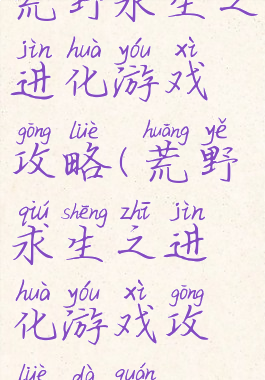 荒野求生之
jìn huà yóu xì
进化游戏
gōng lüè huāng yě
攻略(荒野
qiú shēng zhī jìn
求生之进
huà yóu xì gōng
化游戏攻
lüè dà quán